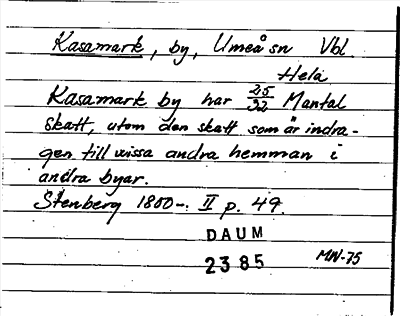 Kasamark, by, Umeå sn Vbl
Hela
Kasamark by har 25/32 Mantal
skatt, utom den skatt som är indra-
gen till vissa andra hemman i
andra byar.
Stenberg 1800-. II p. 49.
DAUM
2385
MW-75